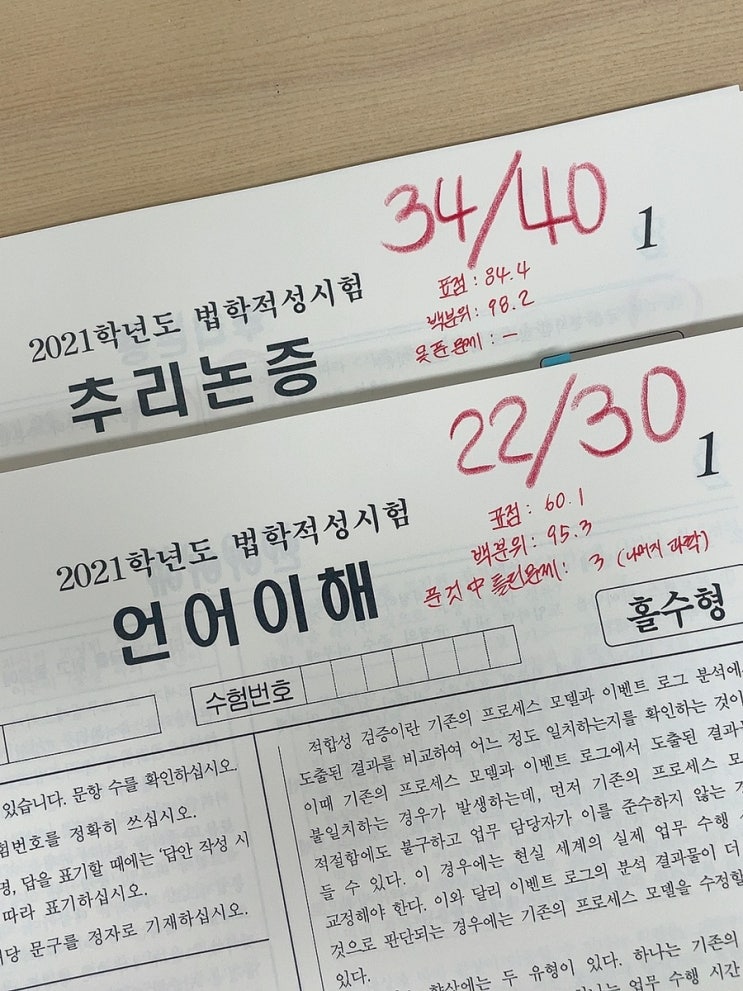 34/40
1
표점 : 84.4
백분위 : 98.2
못푼문제 : -
2021학년도 법학적성시험
추리논증
22/30
1
표점 : 60.1
백분위 : 95.3
푼것 中 틀린문제 : 3 (나머지 과학)
2021학년도 법학적성시험
언어이해
홀수형
수험번호
있습니다. 문항 수를 확인하십시오.
험번호를 정확히 쓰십시오.
명, 답을 표기할 때에는 '답안 작성 시
따라 표기하십시오.
당 문구를 정자로 기재하십시오.
적합성 검증이란 기존의 프로세스 모델과 이벤트 로그 분석에
도출된 결과를 비교하여 어느 정도 일치하는지를 확인하는 것이
이때 기존의 프로세스 모델과 이벤트 로그에서 도출된 결과
불일치하는 경우가 발생하는데, 먼저 기존의 프로세스 모
적절함에도 불구하고 업무 담당자가 이를 준수하지 않는
들 수 있다. 이 경우에는 현실 세계의 실제 업무 수행
교정해야 한다. 이와 달리 이벤트 로그의 분석 결과물이 더
것으로 판단되는 경우에는 기존의 프로세스 모델을 수정할
있다.
향상에는 두 유형이 있다. 하나는 기존의
업무 수행 시간